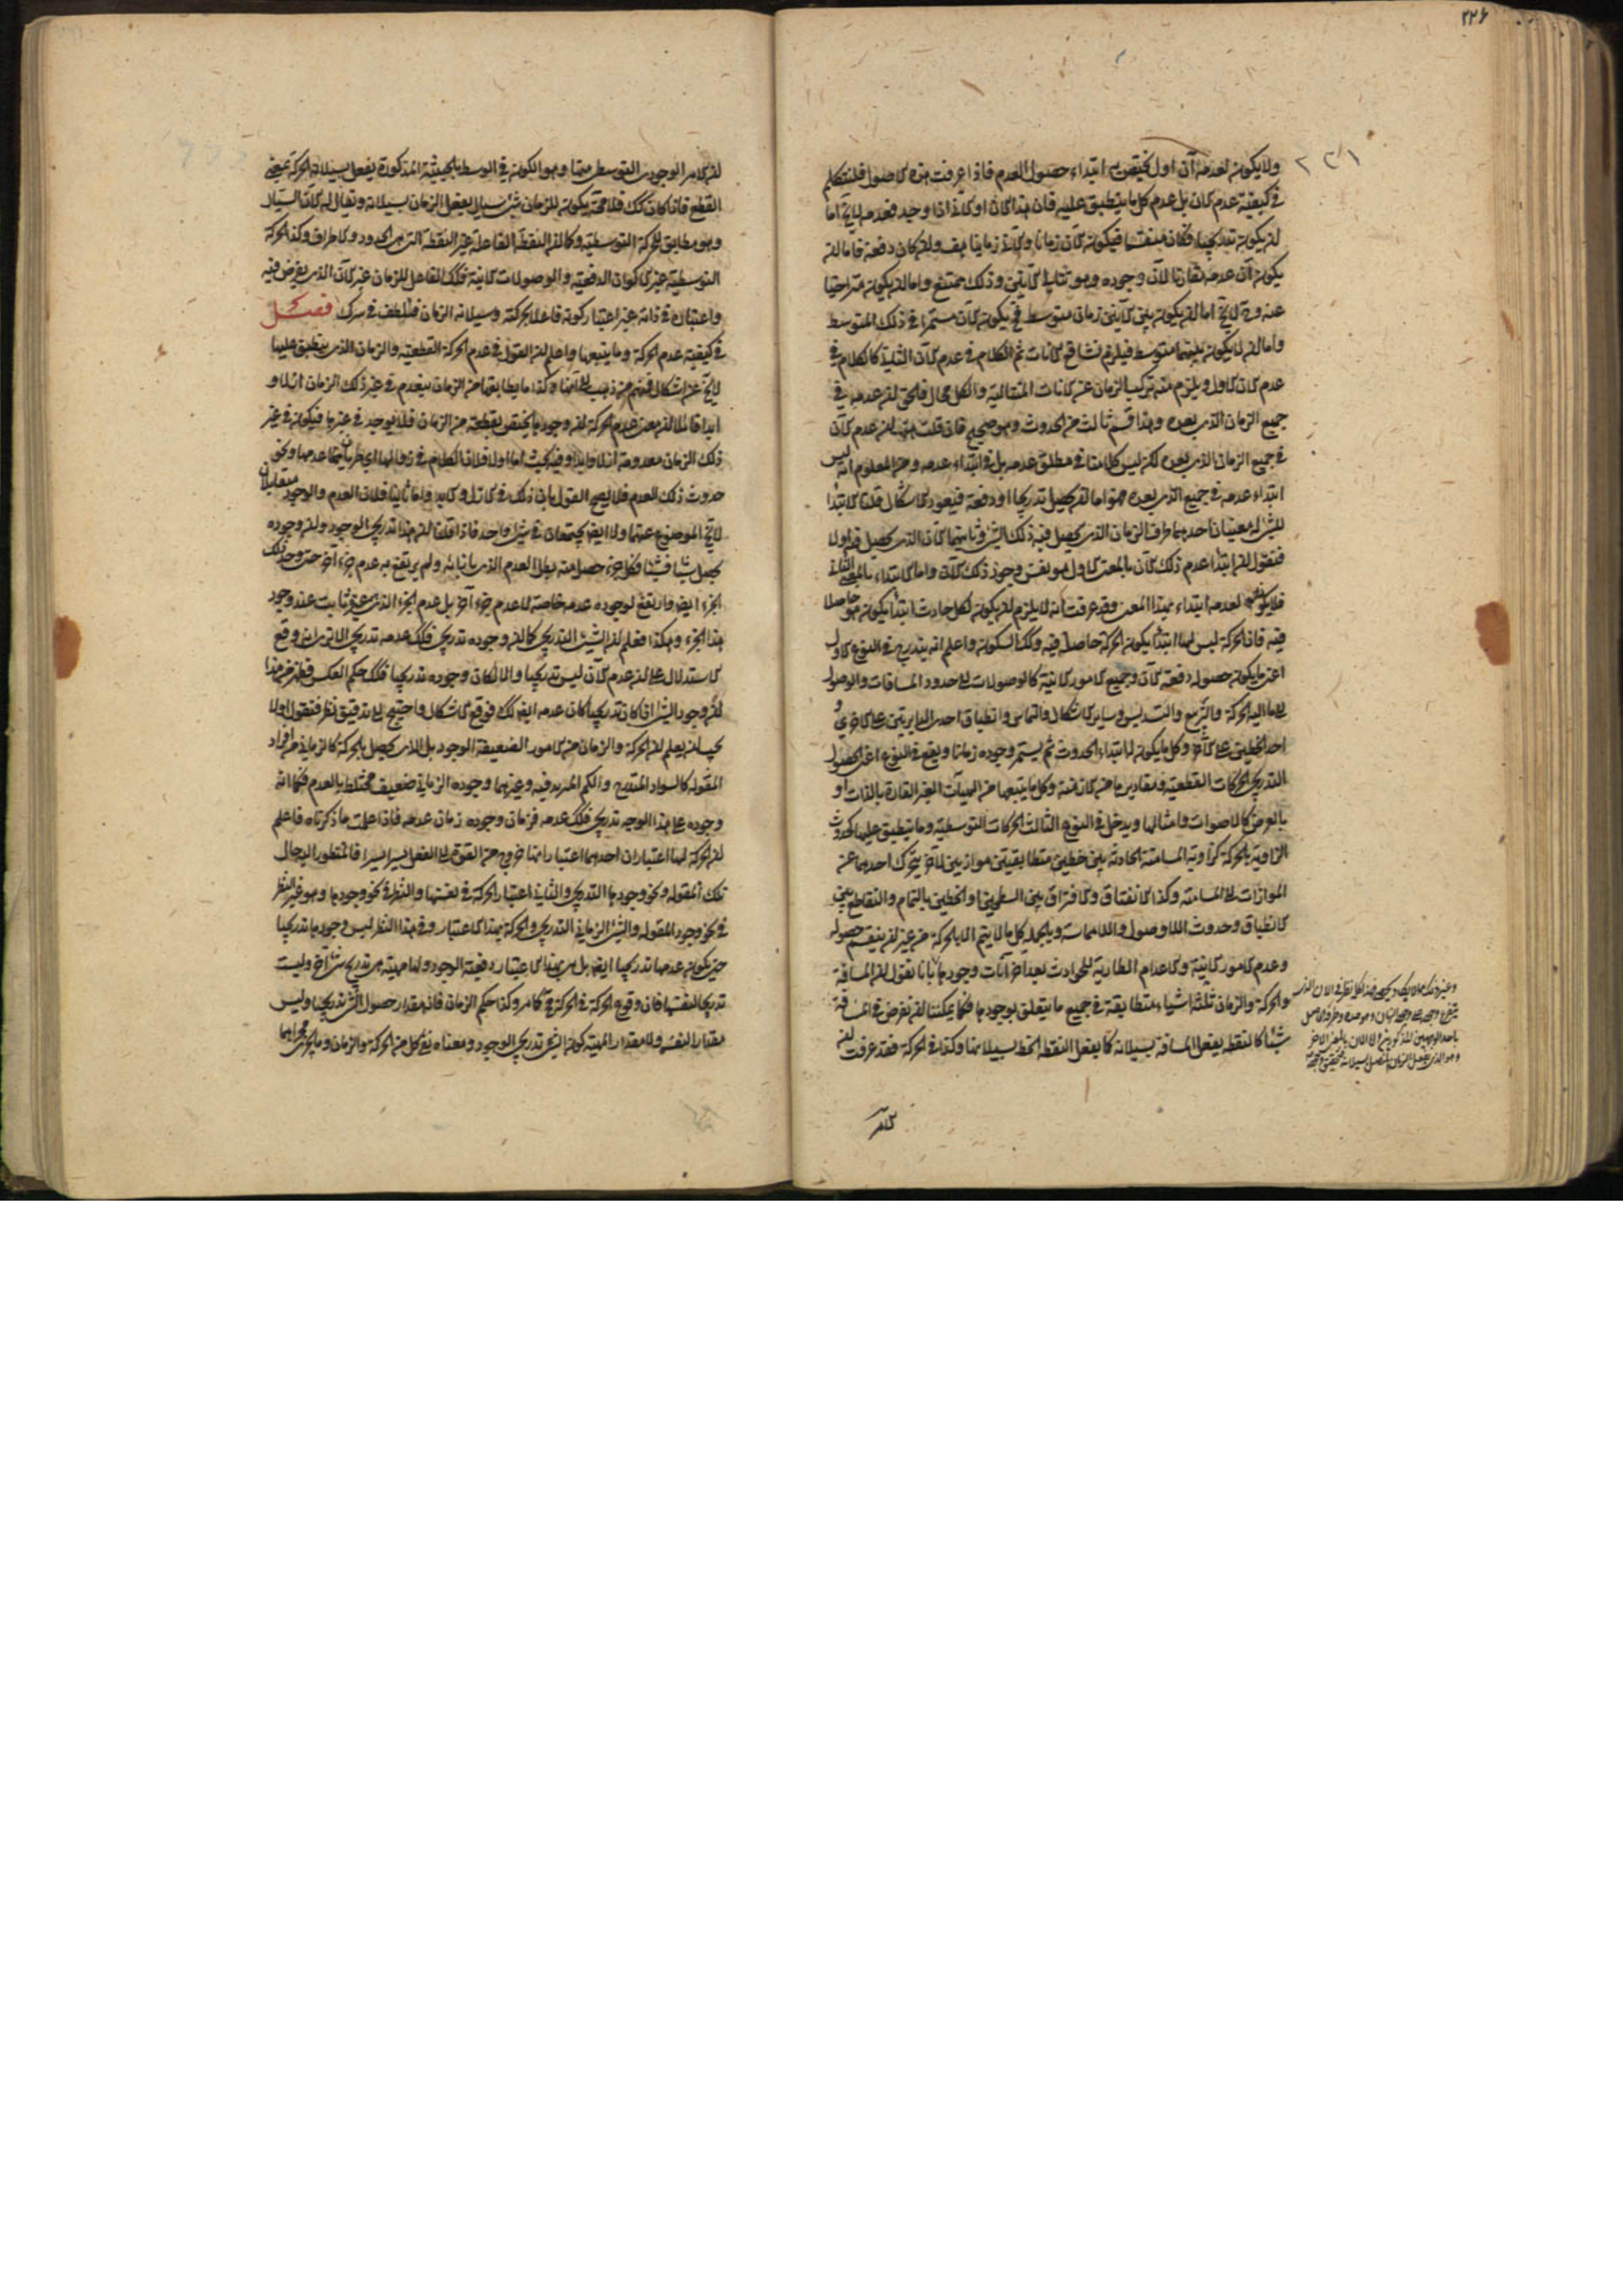 ٢٢۶
٢٢١
ولا يكون لعدمه آن اول يختص به ابتداء حصول العدم فاذا عرفت هذه الاصول فلنتكلم
في كيفية عدم الآن بل عدم كل ما ينطبق عليه فان هذا الآن او الآني اذا وجد فعدمه لا يخ اما
ان يكون تدريجيا فكان منقسما فيكون الآن زمانا والآني زمانيا هف وان كان دفعة فاما ان
يكون آن عدمه مقارنا لآن وجوده وهو تتالي الآنين وذلك ممتنع واما ان يكون متراخيا
عنه وح لا يخ اما ان يكون بين الآنين زمان متوسط فيكون الآن مستمرا في ذلك المتوسط
واما ان لا يكون بينهما متوسط فيلزم تشافع الآنات ثم الكلام في عدم الآن الثاني كالكلام في
عدم الآن الاول ويلزم منه تركب الزمان عن الآنات المتتالية والكل محال فالحق ان عدمه في
جميع الزمان الذي بعده وهذا قسم ثالث من الحدوث وهو صحيح فان قلت هب ان عدم الآن
في جميع الزمان الذي بعده لكن ليس كلامنا في مطلق عدمه بل في ابتداء عدمه ومن المعلوم انه ليس
ابتداء عدمه في جميع الذي بعده فهو اما ان يحصل تدريجا او دفعة فيعود الاشكال قلنا الابتداء
للشيء له معنيان احدهما طرف الزمان الذي يحصل فيه ذلك الشيء وثانيهما الآن الذي يحصل فيه اولا
فنقول ان ابتداء عدم ذلك الآن بالمعنى الاول هو بعينه وجود ذلك الآن واما الابتداء بالمعنى الثاني
فلا يكون لعدمه ابتداء بهذا المعنى وقد عرفت انه لا يلزم ان يكون لكل حادث ابتداء يكون هو حاصلا
فيه فان الحركة ليس لها ابتداء يكون الحركة حاصلة فيه وكذلك السكون واعلم انه يندرج في النوع الاول
اعني ما يكون حصوله دفعة الآن وجميع الامور الآنية كالوصولات الى حدود المسافات والوصول
الى ما اليه الحركة والتربيع والتسديس وساير الاشكال والتماس وانطباق احدى الدايرتين على الاخرى و
احد الخطين على الآخر وكل ما يكون له ابتداء الحدوث ثم يستمر وجوده زمانا ويقع في النوع اعني الحصول
التدريجي الحركات القطعية ومقاديرها من الازمنة وكل ما يتبعها من الهيآت الغير القارة بالذات او
بالعرض كالاصوات وامثالها ويدخل في النوع الثالث الحركات التوسطية وما ينطبق عليها كحدوث
الزاوية بالحركة كزاوية المسامتة الحادثة بين خطين متطابقين موازيين لآخر يتحرك احدهما عن
الموازات الى المسامتة وكذا الانفتاق والافتراق بين السطحين او الخطين بالتمام والتقاطع بين
الانطباق وحدوث اللاوصول واللامماسة وبالجملة كل ما لا يتم الا بالحركة من غير ان ينقسم حصوله
وعدم الامور الآنية والاعدام الطارية للحوادث بعد آخر آنات وجودها بانا نقول ان المسافة
والحركة والزمان ثلثة اشياء متطابقة في جميع ما يتعلق بوجودها فكما يمكننا ان نفرض في المسافة
شيئا كالنقطة يفعل المسافة بسيلانه كما يفعل النقطة الخط بسيلانها وكذا في الحركة فقد عرفت ان
الامر
ان الامر الوجودي التوسطي منها وهو الكون في الوسط بالحيثية المذكورة يفعل بسيلانه الحركة بمعنى
القطع فاذا كان كك فلا محة يكون للزمان شيء سيال يفعل الزمان بسيلانه ويقال له الآن السيال
وهو مطابق للحركة التوسطية وكما ان النقطة الفاعلة غير النقطة التي هي الحدود والاطراف وكذا الحركة
التوسطية غير الاكوان الدفعية والوصولات الآنية فكك الفاعل للزمان غير الآن الذي يفرض فيه
واعتباره في ذاته غير اعتبار كونه فاعلا بحركته وسيلانه الزمان فتلطف في سرك فصل
في كيفية عدم الحركة وما يتبعها واعلم ان القول في عدم الحركة القطعية والزمان الذي ينطبق عليها
لا يخ عن اشكال فمنهم من ذهب الى انها وكذا ما يطابقها من الزمان ينعدم في غير ذلك الزمان ازلا و
ابدا قائلا ان معنى عدم الحركة ان وجودها يختص بقطعة من الزمان فلا يوجد في غيرها فيكون في غير
ذلك الزمان معدومة ازلا وابدا وفيه بحث اما اولا فلان الكلام في زوالها اي طريان عدمها ونحو
حدوث ذلك العدم فلا يصح القول بان ذلك في الازل والابد واما ثانيا فلان العدم والوجود متقابلان
لا يخ الموضوع عنهما ولا ايضا يجتمعان في شيء واحد فاذا قلنا ان هذا تدريجي الوجود وان وجوده
يحصل شيئا فشيئا فكل جزء حصل منه بطل العدم الذي بازائه ولم يرتفع به عدم جزء آخر حتى وجد ذلك
الجزء ايضا وارتفع بوجوده عدمه خاصة لا عدم جزء آخر بل عدم الجزء الذي عينه ثابت عند وجود
هذا الجزء وهكذا فعلم ان الشيء التدريجي كما ان وجوده تدريجي فكك عدمه تدريجي الا ترى انه وقع
الاستدلال على ان عدم الآن ليس تدريجيا والا لكان وجوده تدريجيا فكك حكم العكس فظهر من هذا
ان وجود الشيء اذا كان تدريجيا كان عدمه ايضا كك فوقع الاشكال واحتيج الى تدقيق نظر فنقول اولا
يجب ان يعلم ان الحركة والزمان من الامور الضعيفة الوجود بل الذي يحصل بالحركة كالزماني من افراد
المقولة كالسواد المتدرج والكم المتزيد فيه وغيرهما وجوده الزماني ضعيف مختلط بالعدم فكما انه
وجوده على هذا الوجه تدريجي فكك عدمه فزمان وجوده زمان عدمه فاذا علمت ما ذكرناه فاعلم
ان الحركة لها اعتباران احدهما اعتبار انها خروج من القوة الى الفعل يسيرا يسيرا فالمنظور اليه حال
تلك المقولة ونحو وجودها التدريجي والثاني اعتبار الحركة في نفسها والنظر في نحو وجودها وهو غير النظر
في نحو وجود المقولة والشيء الزماني التدريجي والحركة بهذا الاعتبار وفي هذا النظر ليس وجودها تدريجيا
حتى يكون عدمها تدريجيا ايضا بل هي بهذا الاعتبار دفعية الوجود ولها مهية هي تدريج شيء آخر وليست
تدريجا لنفسها فان وقوع الحركة في الحركة مح كما مر وكذا حكم الزمان فانه مقدار حصول الشيء تدريجيا وليس
مقدارا لنفسه ولا مقدارا لمهية كون الشيء تدريجي الوجود ومعناه فع كل من الحركة والزمان وما يجري مجراهما